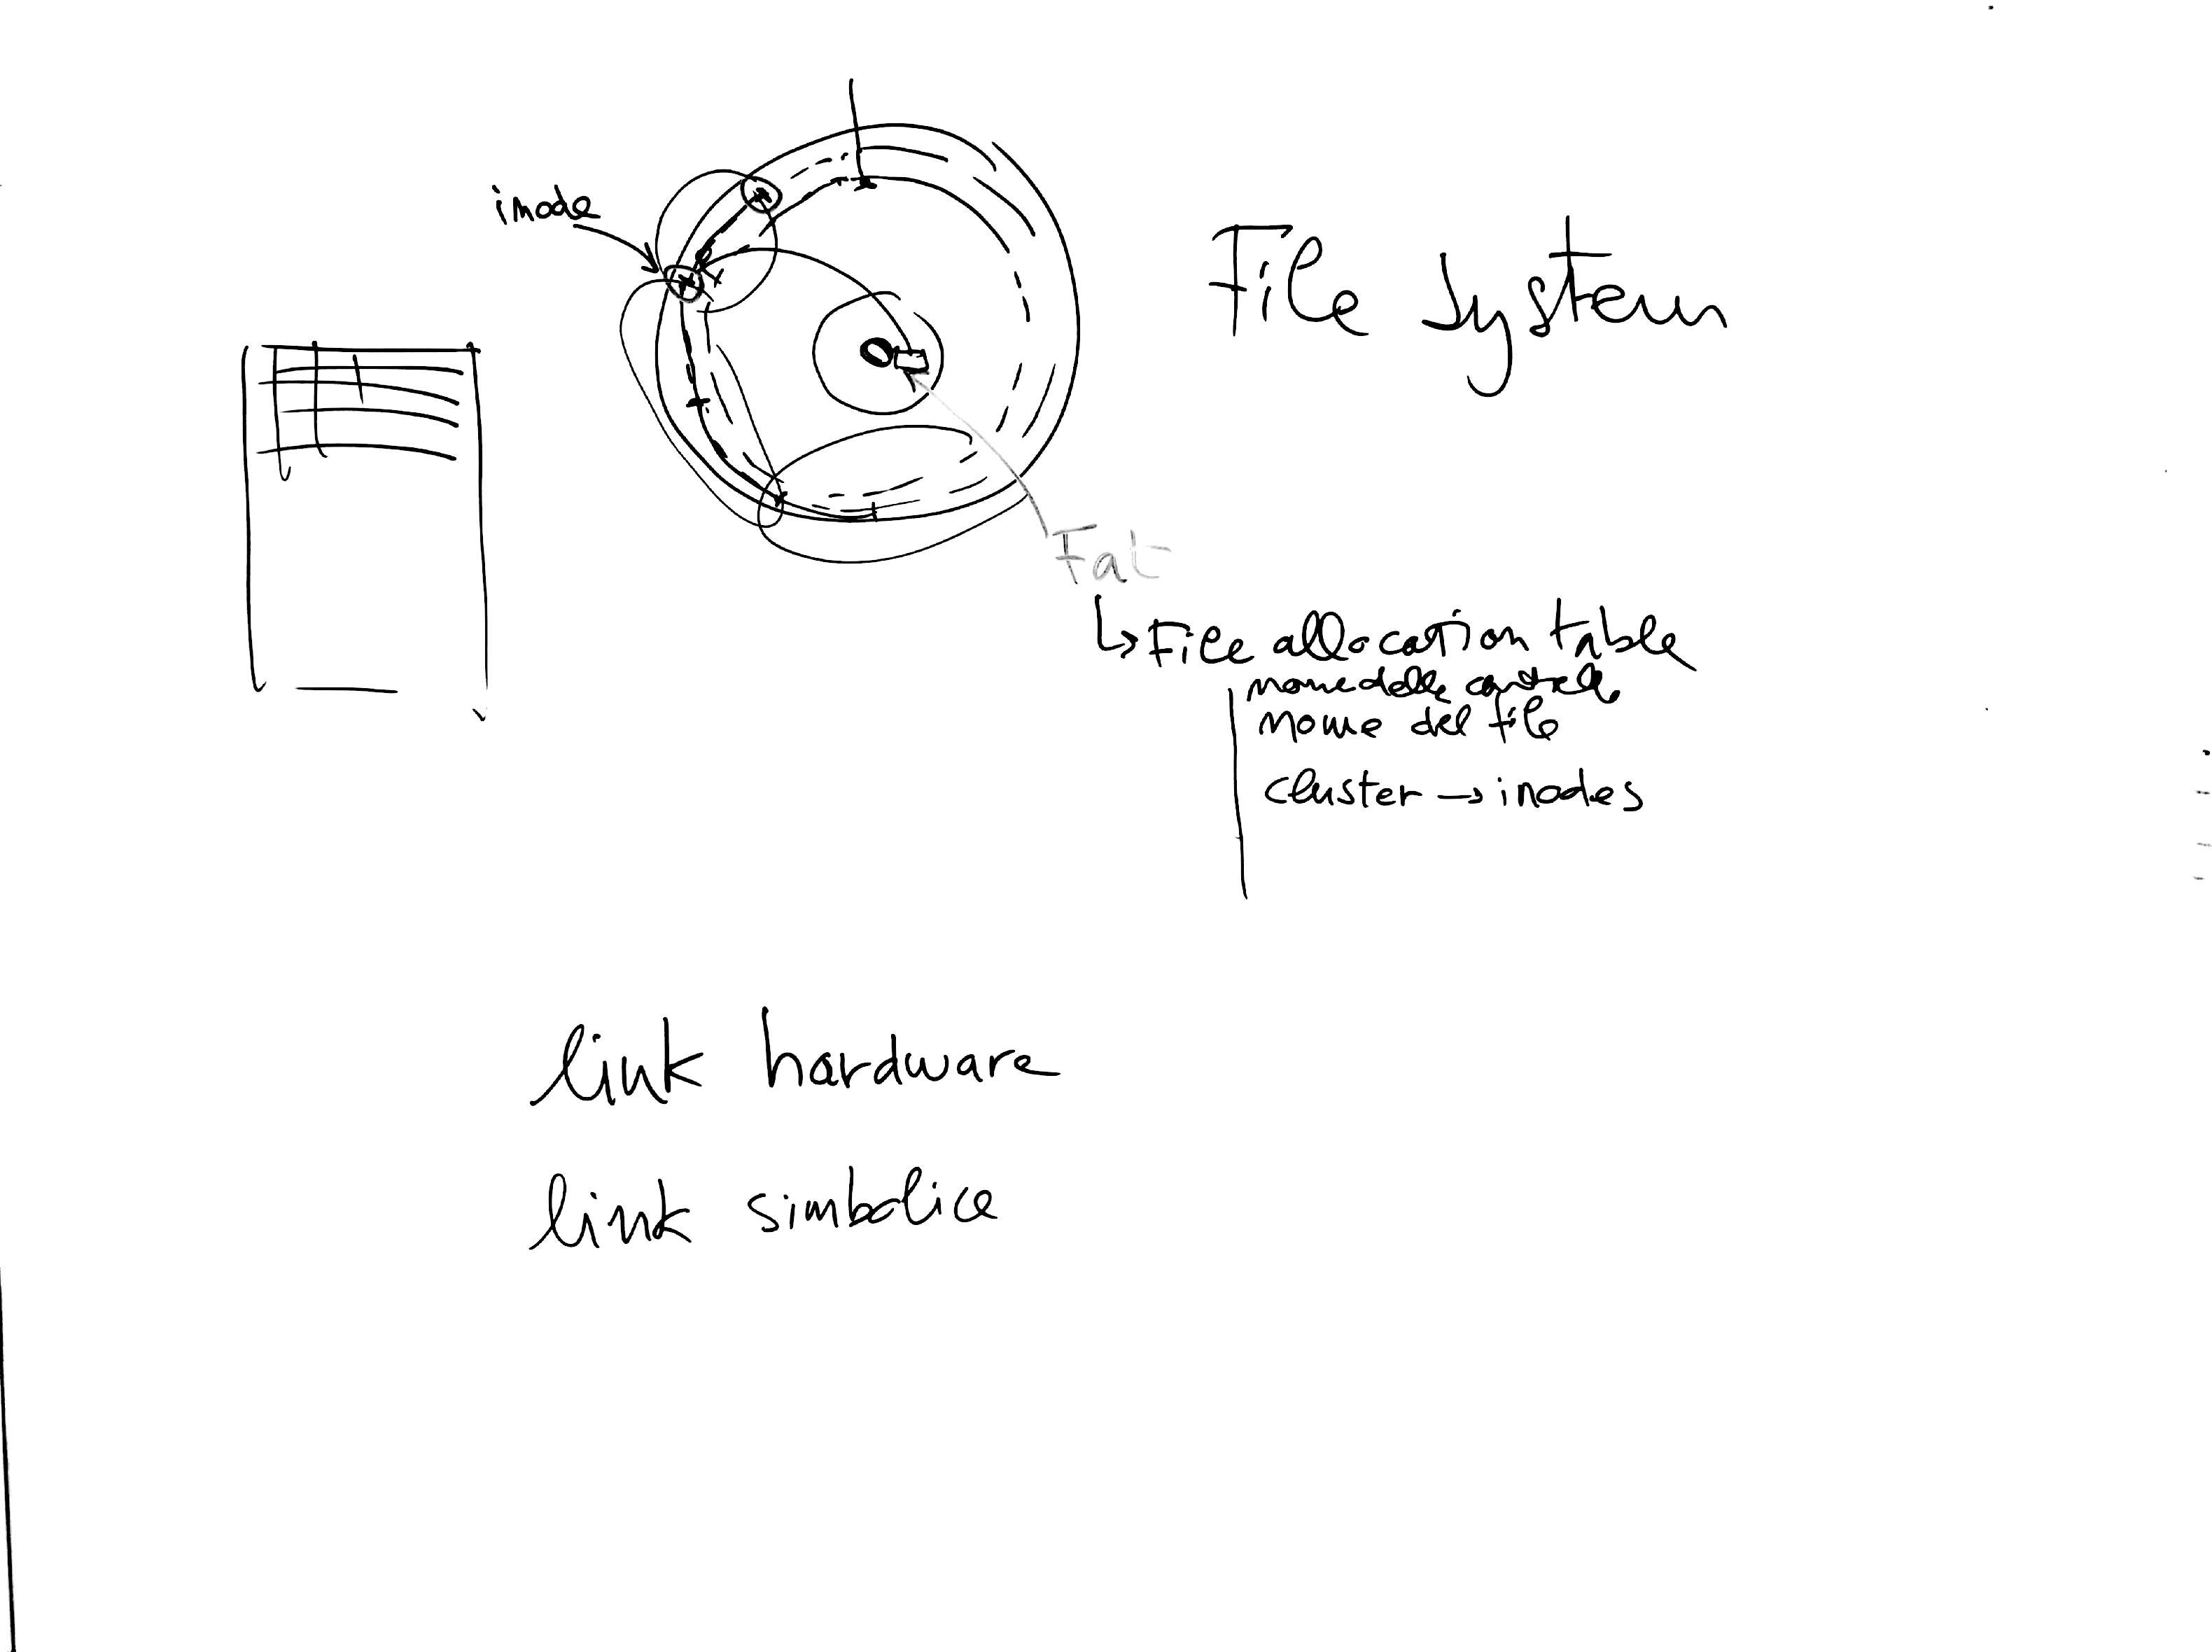 inode
File system
Fat
↳ File allocation table
nome della
nome del file
cluster → inodes
link hardware
link simbolice